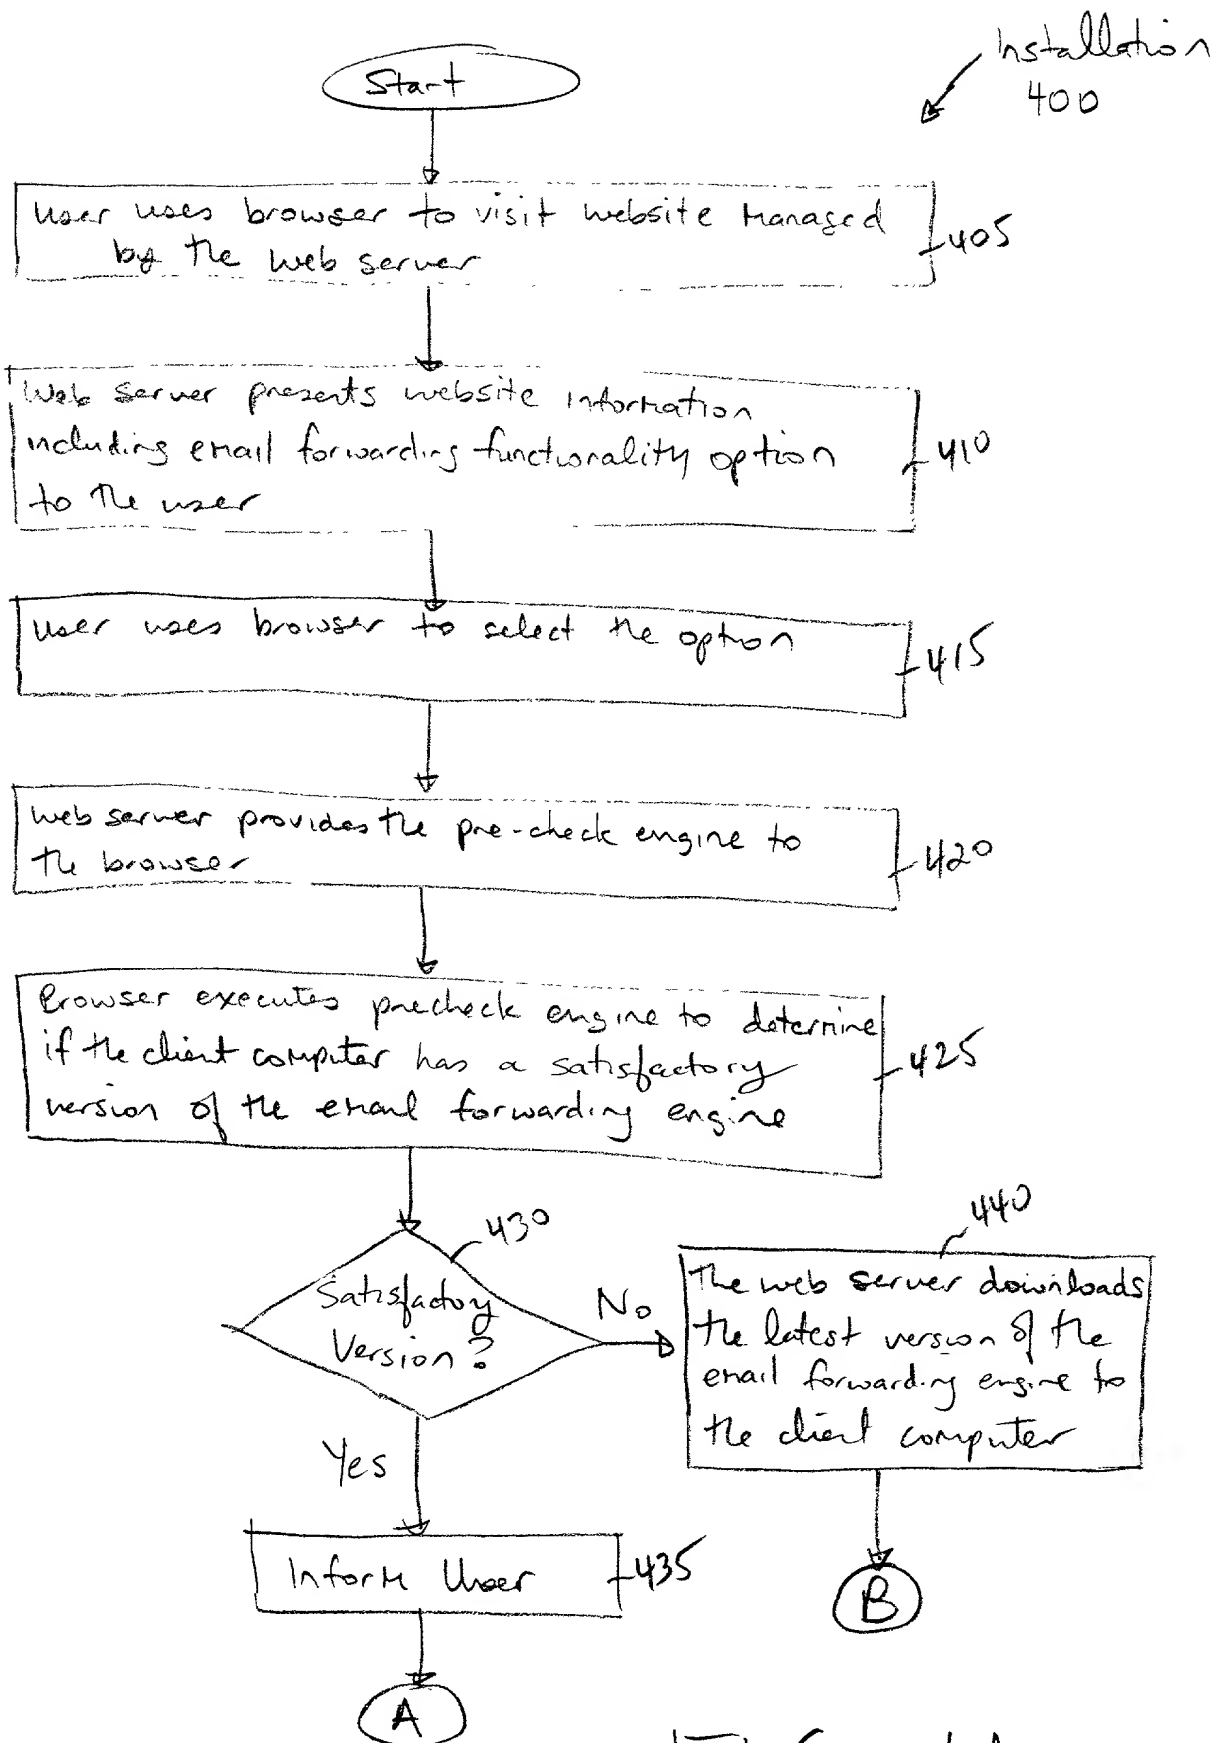 Installation
400
Start
User uses browser to visit website managed
by the web server
405
Web server presents website information
including email forwarding functionality option
to the user
410
User uses browser to select the option
415
Web server provides the pre-check engine to
the browser
420
Browser executes precheck engine to determine
if the client computer has a satisfactory
version of the email forwarding engine
425
430
Satisfactory
Version?
No
440
The web server downloads
the latest version of the
email forwarding engine to
the client computer
Yes
Inform User
435
B
A